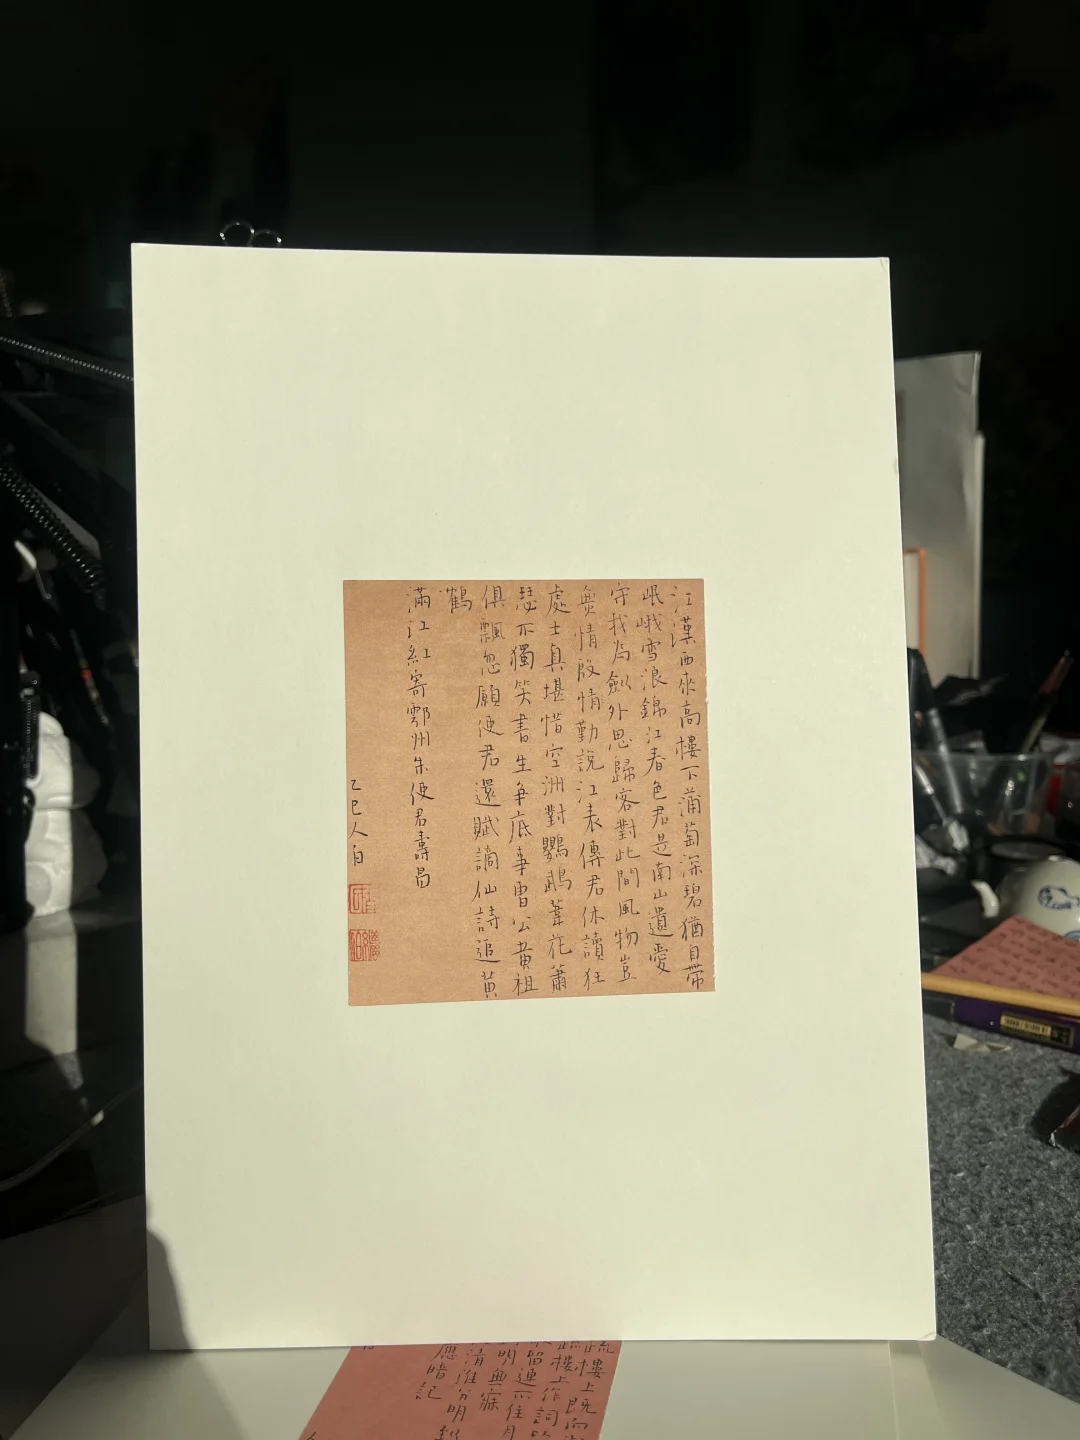 江漢西來高樓下蒲萄深碧猶自帶
岷峨雪浪錦江春色君是南山遺愛
守我為劍外思歸客對此間風物豈
無情殷情勤說江表傳君休讀狂
處士真堪惜空洲對鸚鵡葦花蕭
瑟不獨笑書生争底事曹公黄祖
俱飄忽願使君還賦謫仙詩追黄
鶴
滿江紅寄鄂州朱使君壽昌
乙巳人白
樓上既而
樓上作詞
留連不住月
明無寐
清淮分明
應暗記